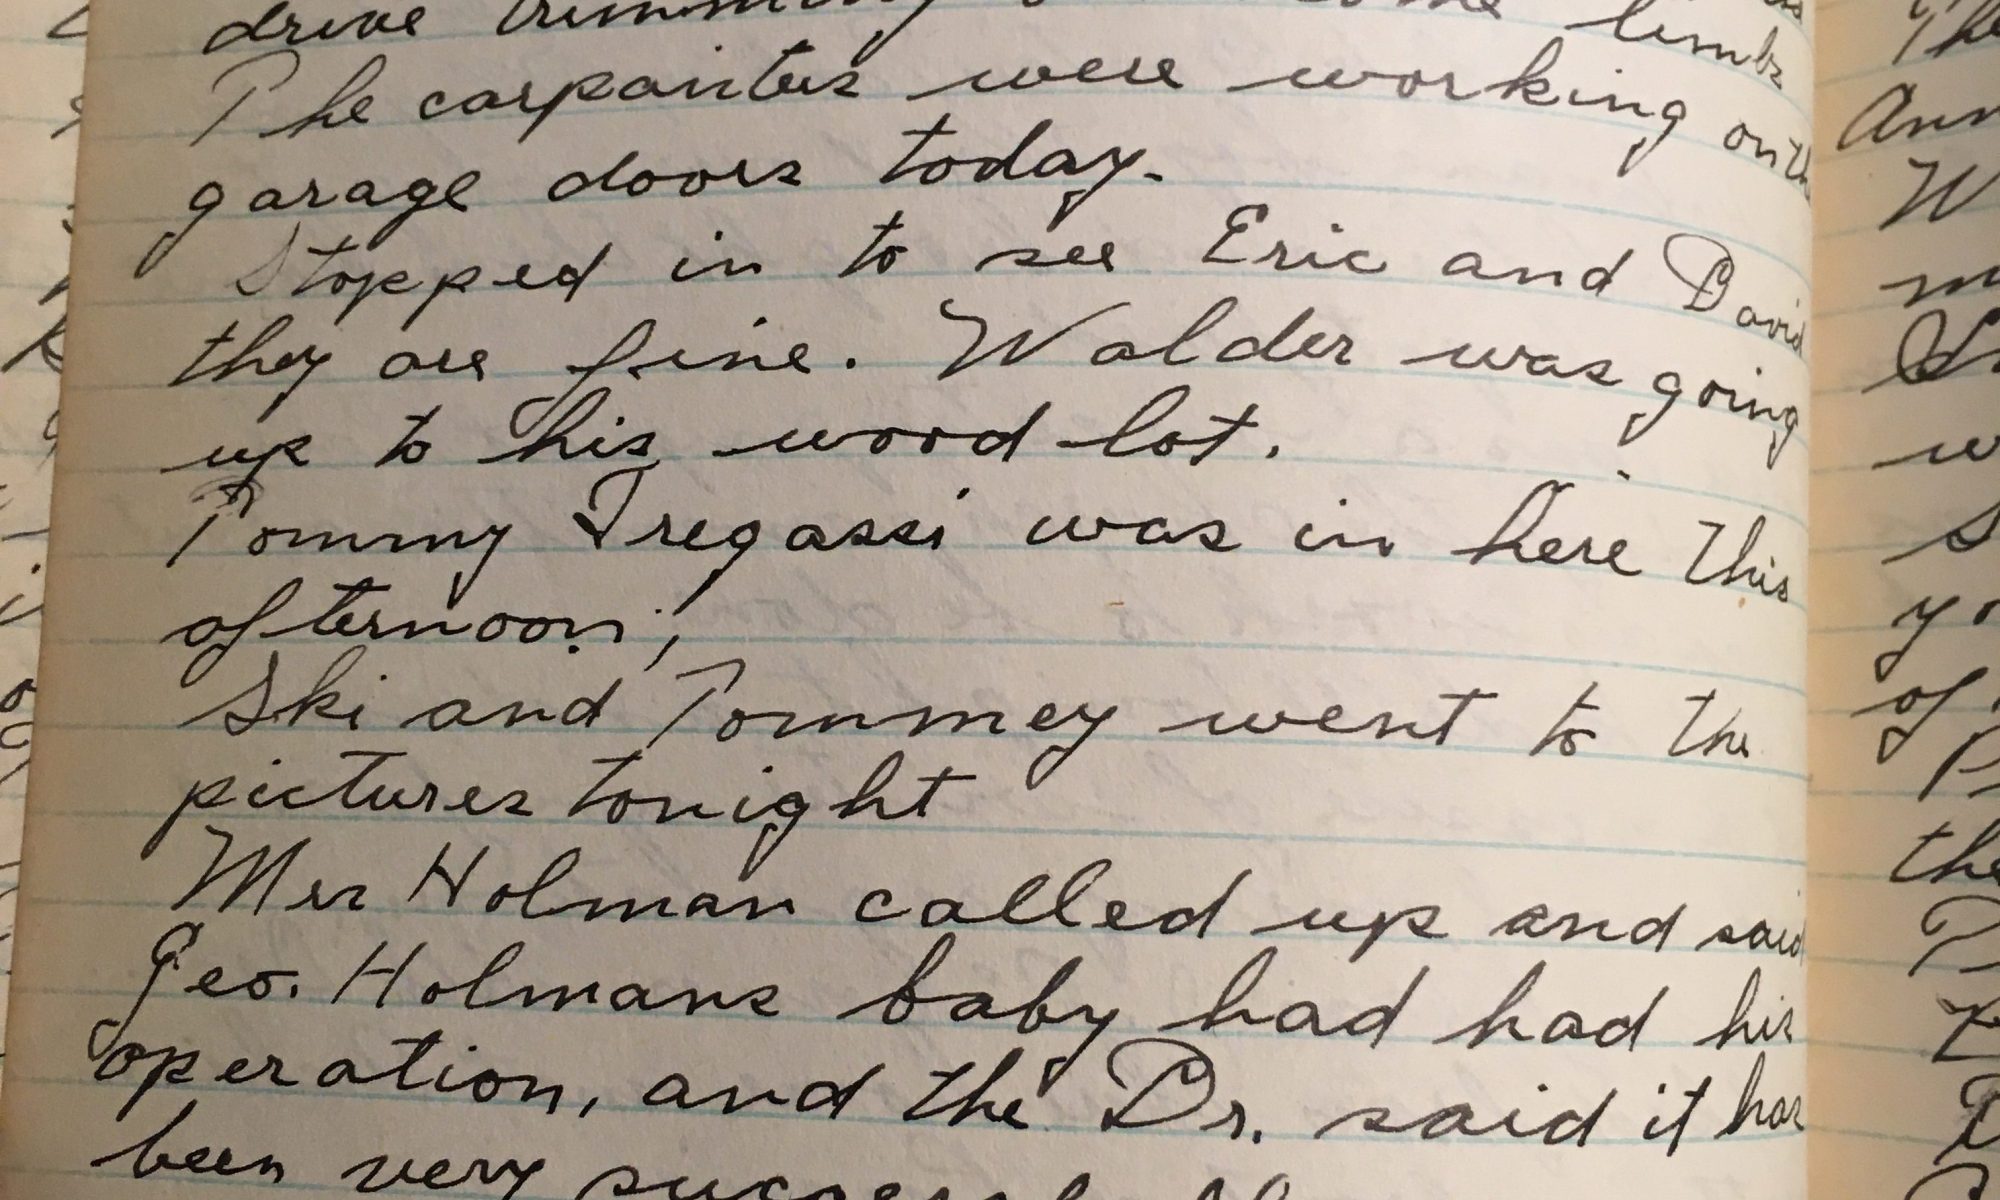 drive trimming some limbs
The carpainters were working on the
garage doors today.
Stopped in to see Eric and David
they are fine. Walder was going
up to his wood lot.
Tommy Tregassi was in here this
afternoon,
Ski and Tommey went to the
pictures tonight
Mrs Holman called up and said
Geo. Holmans baby had had his
operation, and the Dr. said it has
been very
The
Ann
W
of
the